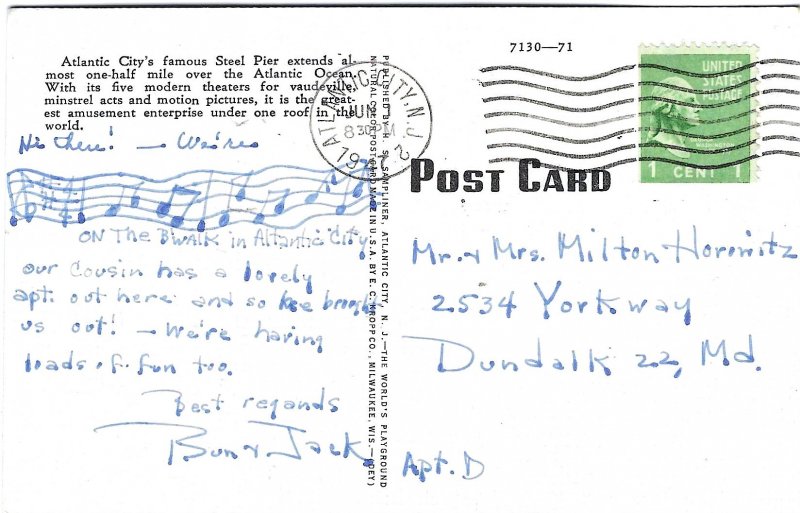 Atlantic City's famous Steel Pier extends al-
most one-half mile over the Atlantic Ocean.
With its five modern theaters for vaudeville,
minstrel acts and motion pictures, it is the great-
est amusement enterprise under one roof in the
world.
Hi there! — We're
ON The B'WALK in Altantic City
our Cousin has a lovely
apt. out here and so he brought
us out! — We're having
loads of fun too.
Best regards
Bun & Jack
PUBLISHED BY H. S. SAMPLINER, ATLANTIC CITY, N. J.—THE WORLD'S PLAYGROUND
NATURAL COLOR POST CARD MADE IN U.S.A. BY E. C. KROPP CO., MILWAUKEE, WIS.—(DEY)
7130—71
ATLANTIC CITY, N.J. 2
JUN
8 30 PM
UNITED
STATES
POSTAGE
WASHINGTON
1 CENT 1
POST CARD
Mr. & Mrs. Milton Horowitz
2534 Yorkway
Dundalk 22, Md.
Apt. D